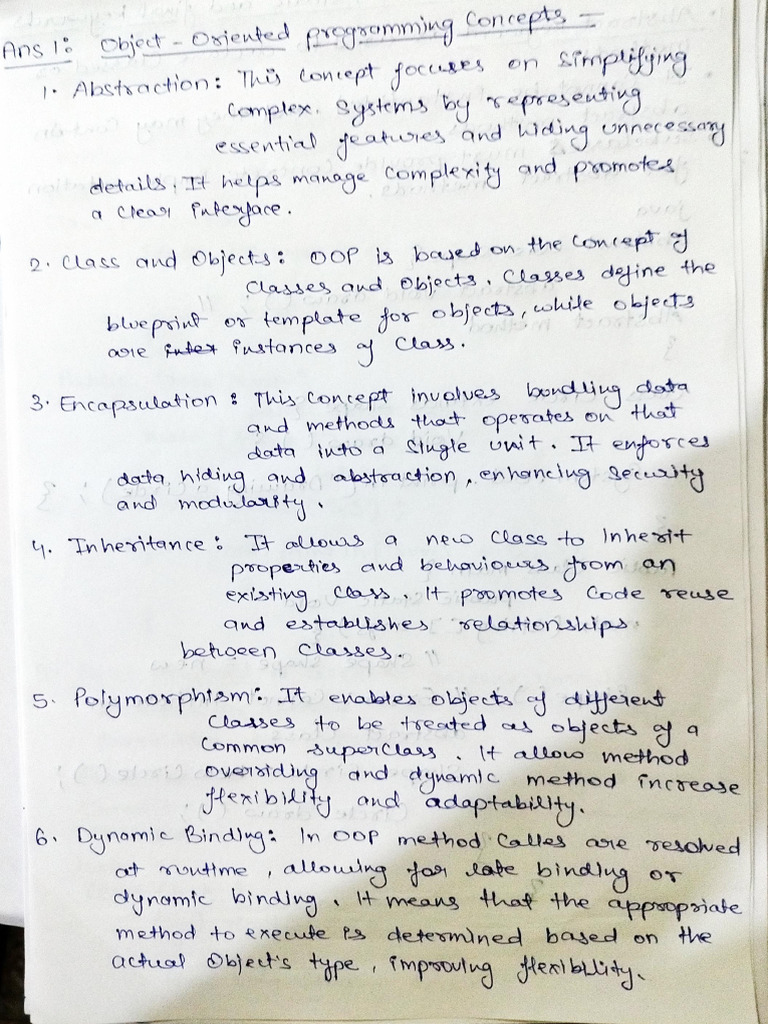 Ans 1: Object-Oriented programming Concepts -
1. Abstraction: This concept focuses on simplifying
complex. systems by representing
essential features and hiding unnecessary
details. It helps manage complexity and promotes
a clear interface.
2. Class and Objects: OOP is based on the concept of
Classes and Objects. Classes define the
blueprint or template for objects, while objects
are inter instances of Class.
3. Encapsulation: This concept involves bondling data
and methods that operates on that
data into a single unit. It enforces
data hiding and abstraction, enhancing security
and modularity.
4. Inheritance: It allows a new class to inherit
properties and behaviours from an
existing class. It promotes code reuse
and establishes relationships
between classes.
5. Polymorphism: It enables objects of different
classes to be treated as objects of a
common superclass. It allow method
overriding and dynamic method increase
flexibility and adaptability.
6. Dynamic Binding: In OOP method calles are resolved
at runtime, allowing for late binding or
dynamic binding. It means that the appropriate
method to execute is determined based on the
actual Object's type, improving flexibility.